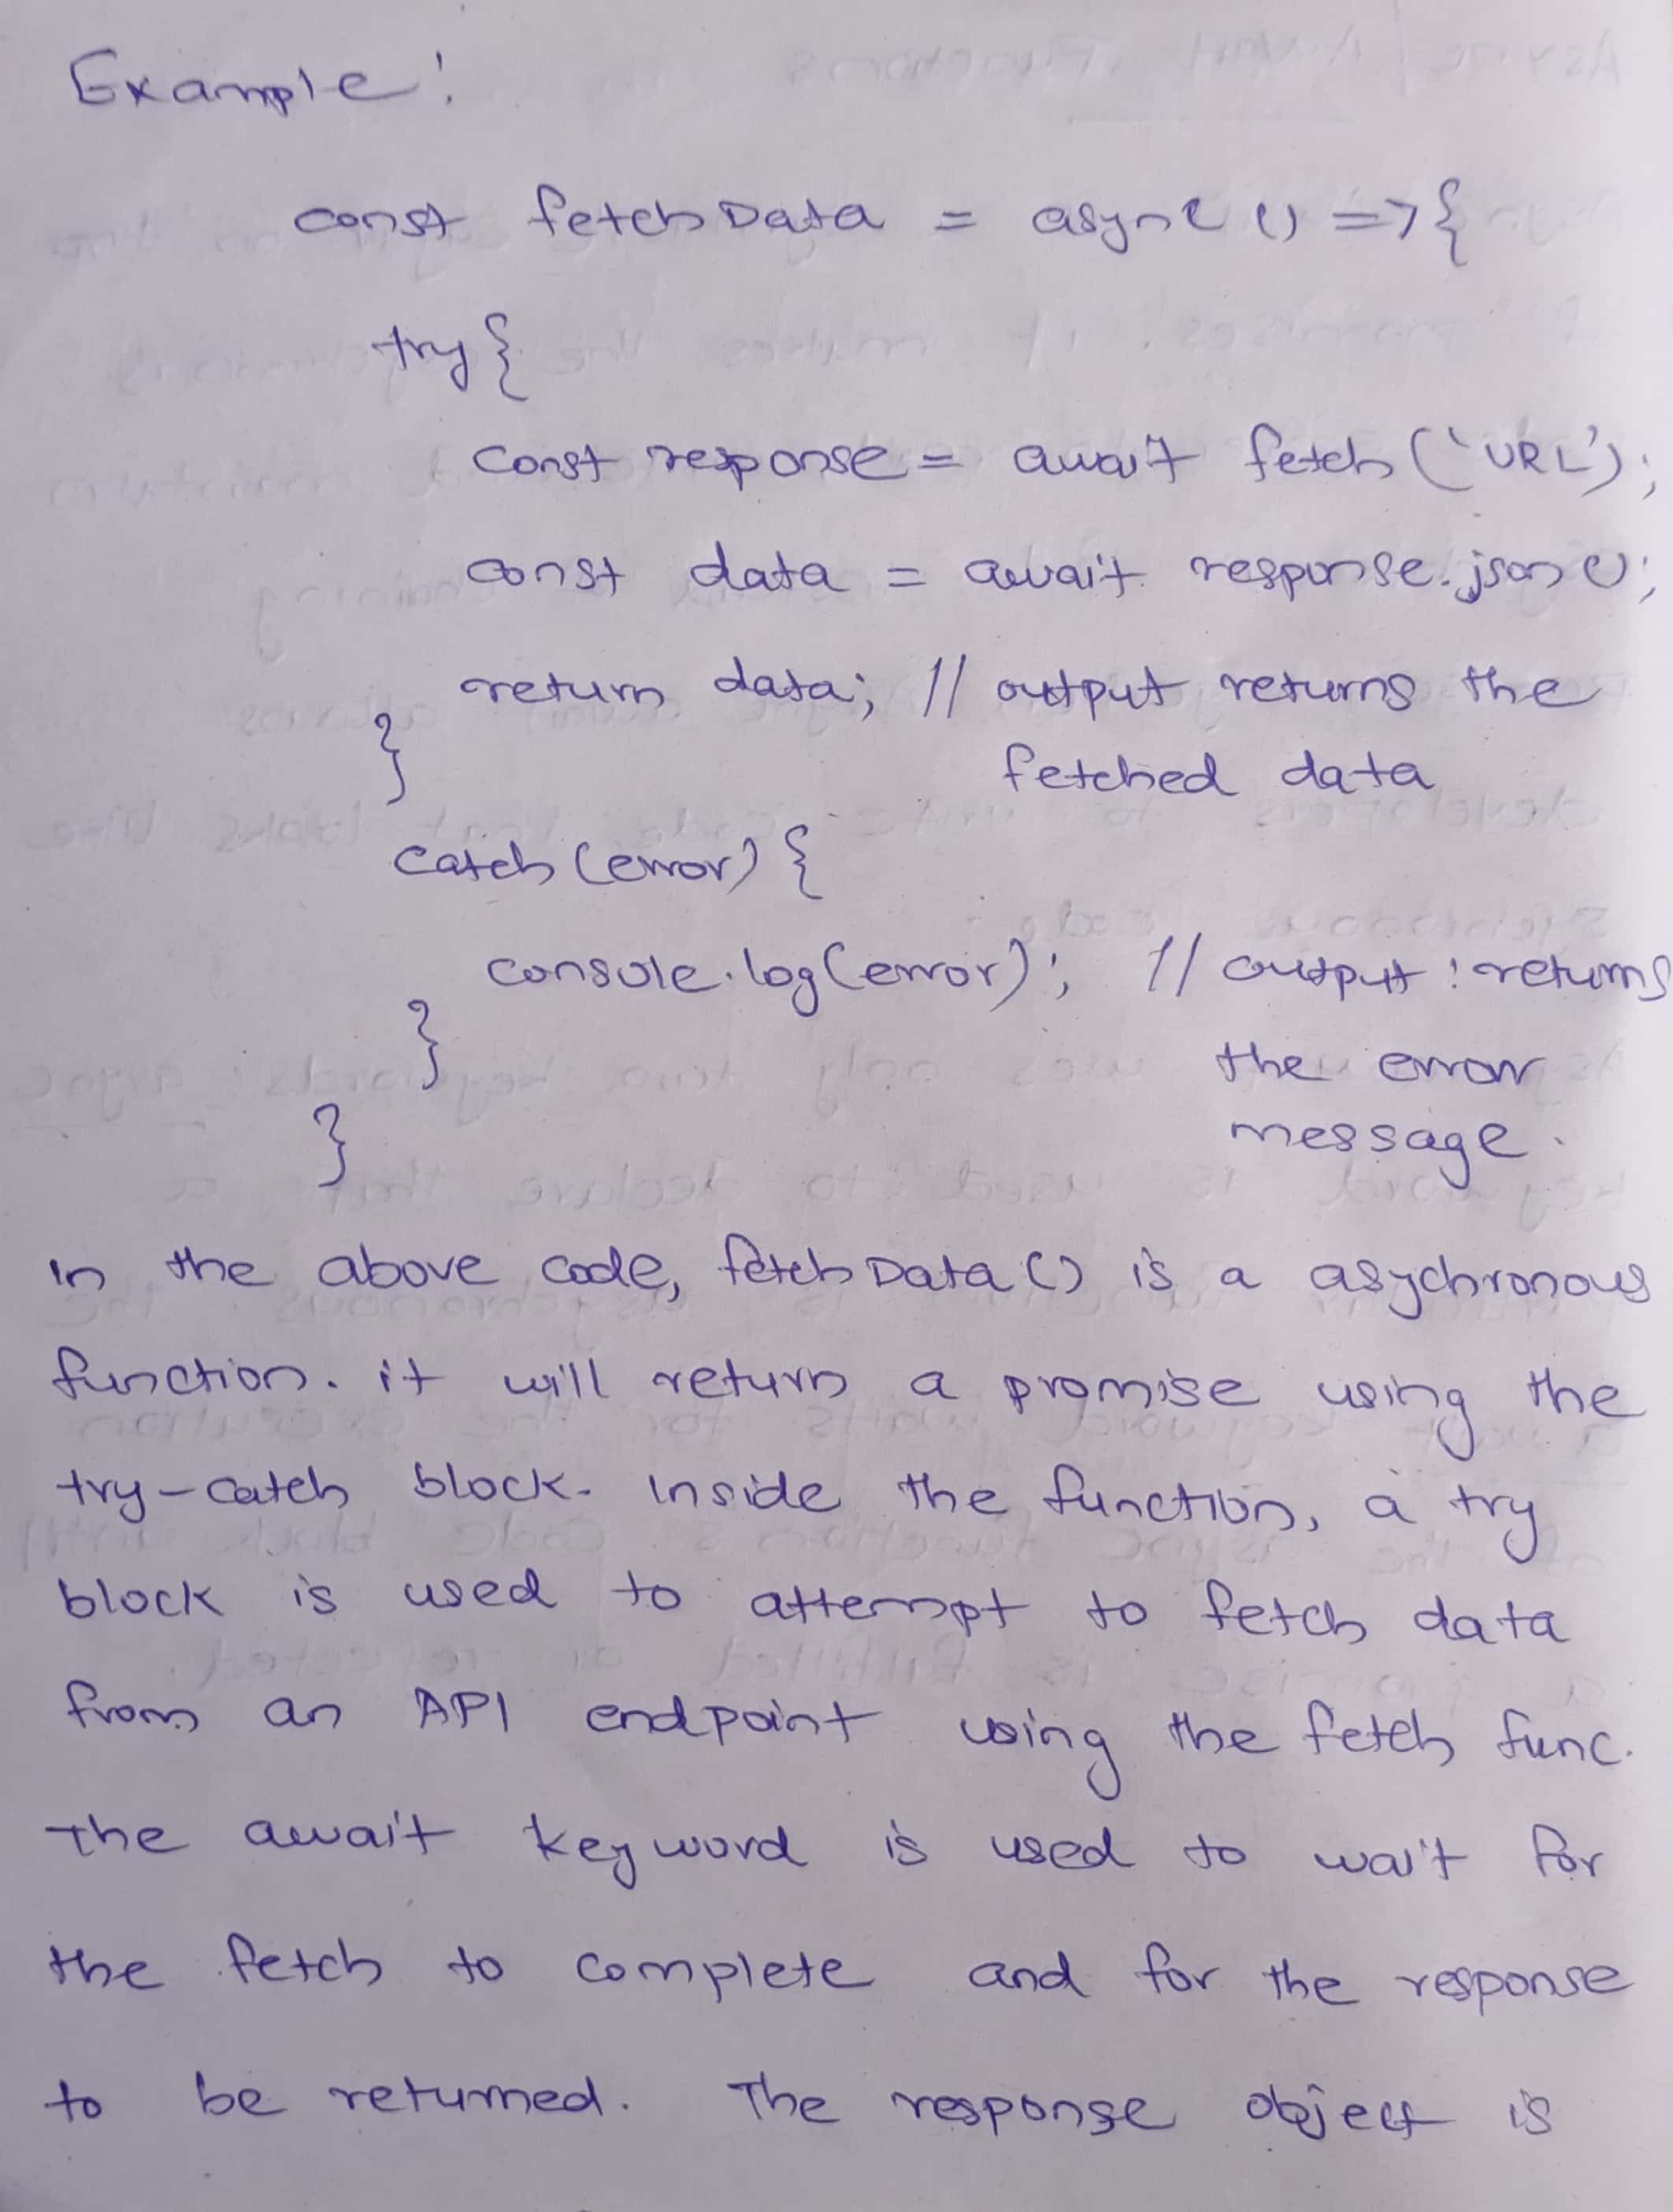 Example:
const fetchData = async () => {
try {
const response = await fetch('URL');
const data = await response.json();
return data; // output returns the
} fetched data
catch (error) {
console.log(error); // output: returns
} the error
} message.
in the above code, fetchData() is a asychronous
function. it will return a promise using the
try-catch block. Inside the function, a try
block is used to attempt to fetch data
from an API endpoint using the fetch func.
The await keyword is used to wait for
the fetch to complete and for the response
to be returned. The response object is